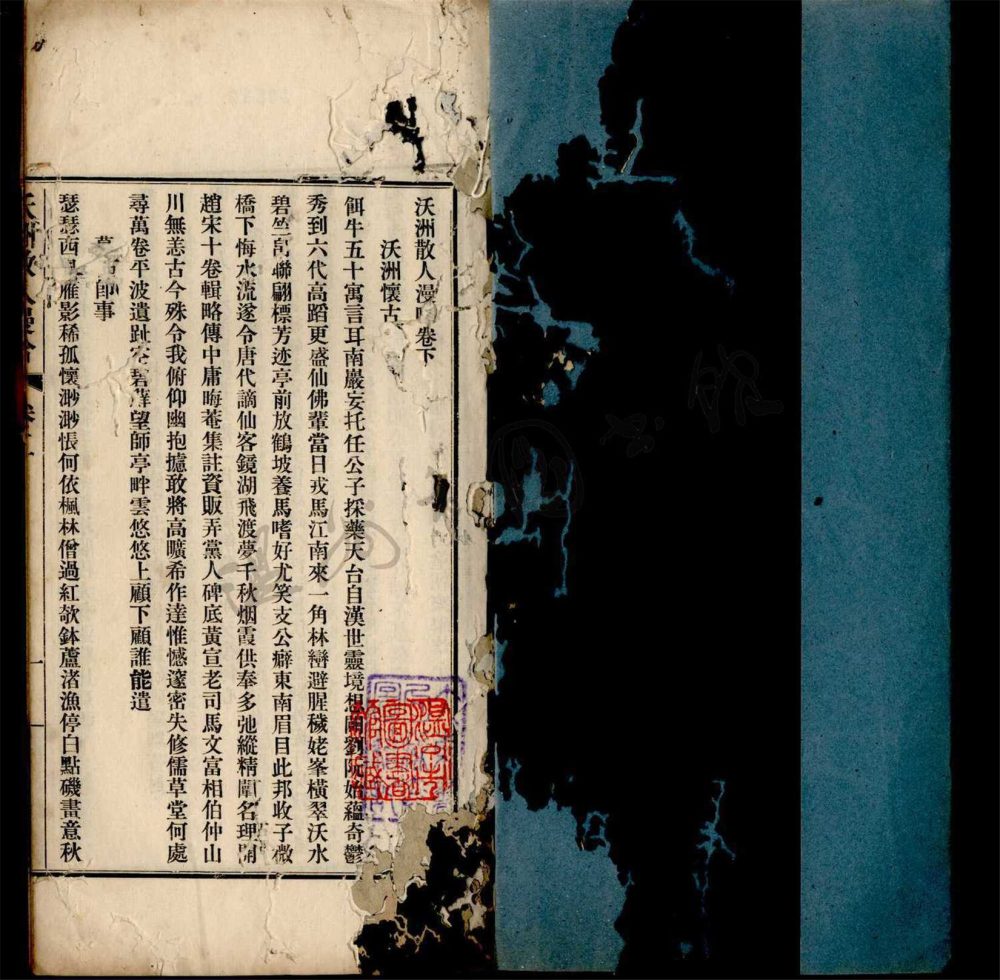 沃洲散人漫 卷下
沃洲懷古
餌牛五十寓言耳南嚴妄托任公子採藥天台自漢世靈境想 劉阮始蘊奇鬱
秀到六代高蹈更盛仙佛輩當日戎馬江南來一角林巒避腥穢姥峯橫翠沃水
碧竺 聯翩標芳迹亭前放鶴坡養馬嗜好尤笑支公癖東南眉目此邦收子微
橋下悔水流遂令唐代謫仙客鏡湖飛渡夢千秋烟霞供奉多弛縱精闡名理開
趙宋十卷輯略傳中庸晦菴集註資販弄黨人碑底黃宣老司馬文富相伯仲山
川無恙古今殊令我俯仰幽抱攄敢將高曠希作達惟憾邃密失修儒草堂何處
尋萬卷平波遺趾 碧蘚望師亭畔雲悠悠上顧下顧誰能遣
卽事
瑟瑟西風雁影稀孤懷渺渺悵何依楓林僧過紅欹鉢蘆渚漁停白點磯畫意秋
沃洲散人漫吟 卷下 一